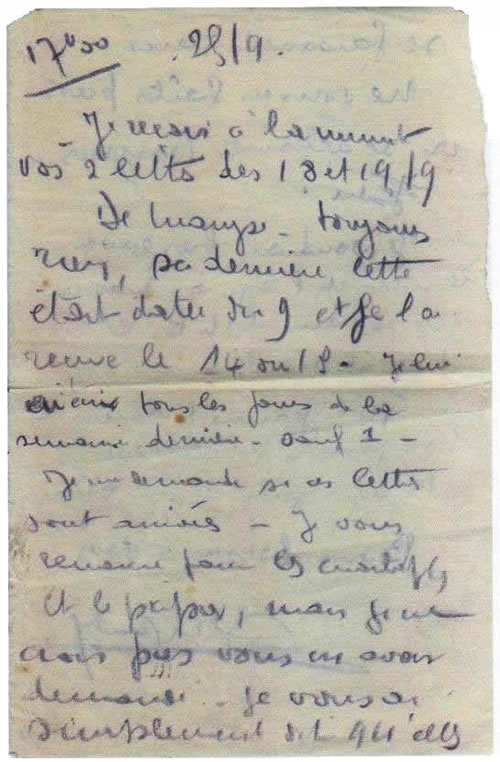 17h30 25/9.
Je reçois à la minute
vos 2 lettres des 18 et 19/9
De toujours
rien, sa dernière lettre
était datée du 9 et je l'ai
reçue le 14 ou 15 - Je lui
ai écrit tous les jours de la
semaine dernière - sauf 1 -
Je me demande si ces lettres
sont arrivées - Je vous
remercie pour les enveloppes
et le papier, mais je ne
crois pas vous en avoir
demandé - Je vous ai
simplement dit qu'elles